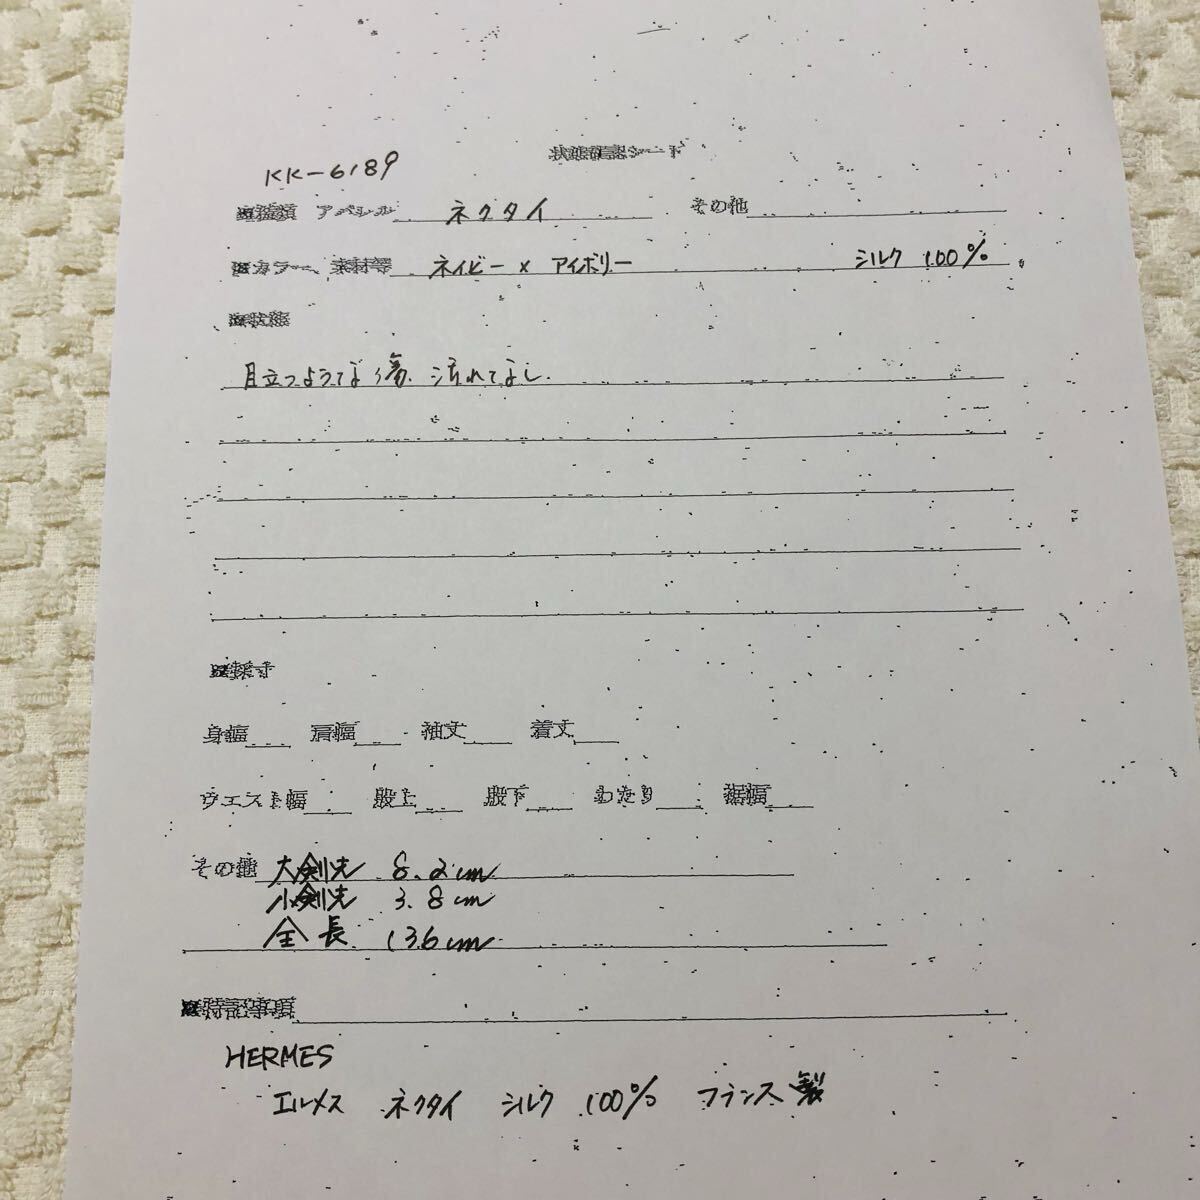 状態確認シート
KK-6189
※種類 アパレル ネクタイ その他
※カラー、素材等 ネイビー × アイボリー シルク 100%
※状態
目立つような傷、汚れなし.
※採寸
身幅 肩幅 袖丈 着丈
ウエスト幅 股上 股下 わたり 裾幅
その他 大剣先 8.2cm
小剣先 3.8cm
全長 136cm
※特記事項
HERMES
エルメス ネクタイ シルク 100% フランス製